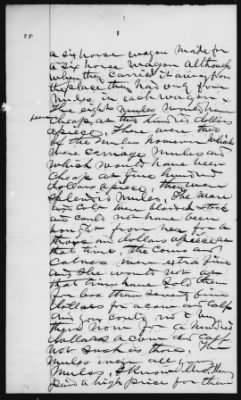 a six horse wagon made for
a six horse wagon although
when they carried it away from
the place they had only four
mules to each wagon.
The eight mules would have
cheap at five hundred dollars
apiece. There were two
of the mules however which
were carriage mules and
which would have been
cheap at five hundred
dollars apiece, they were
splendid mules. The mare
and colt blooded stock
and could not have been
bought from her for a
thousand dollars apiece at
that time. The cows and
calves were extra fine
and she would not at
that time have sold them
for less than seventy five
dollars for a cow and calf
and you could not buy
them now for a hundred
dollars a cow and calf
not such as those. The
mules were all good
mules, I know Mrs.
paid a high price for them